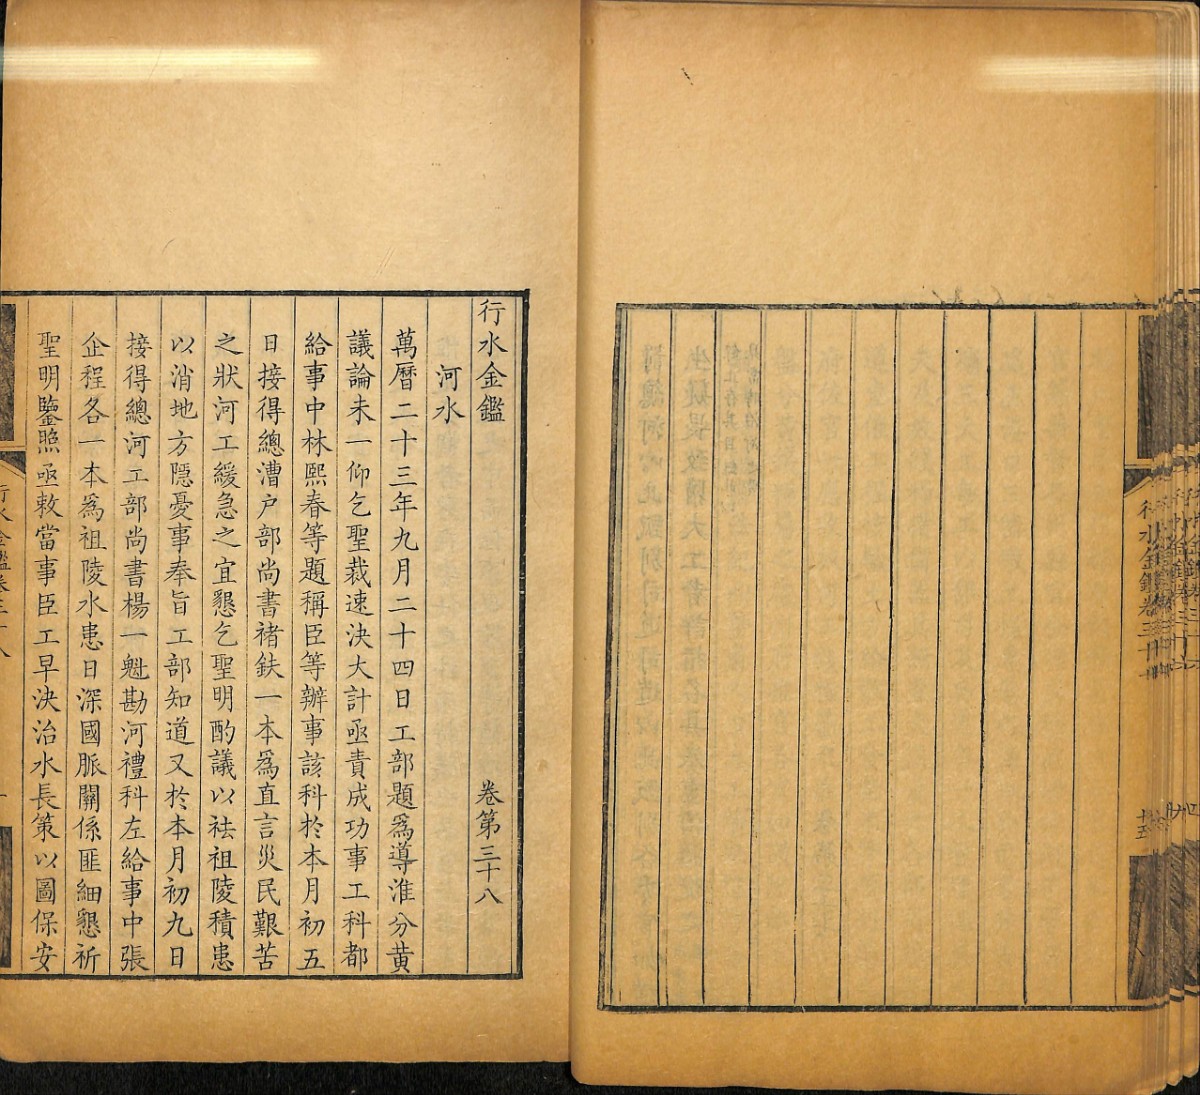 行水金鑑 卷第三十八
河水
萬曆二十三年九月二十四日工部題爲導淮分黄
議論未一仰乞聖裁速決大計亟責成功事工科都
給事中林熙春等題稱臣等辦事該科於本月初五
日接得總漕户部尚書褚鈇一本爲直言災民艱苦
之狀河工緩急之宜懇乞聖明酌議以祛祖陵積患
以消地方隱憂事奉旨工部知道又於本月初九日
接得總河工部尚書楊一魁勘河禮科左給事中張
企程各一本爲祖陵水患日深國脈關係匪細懇祈
聖明鑒照亟敕當事臣工早決治水長策以圖保安